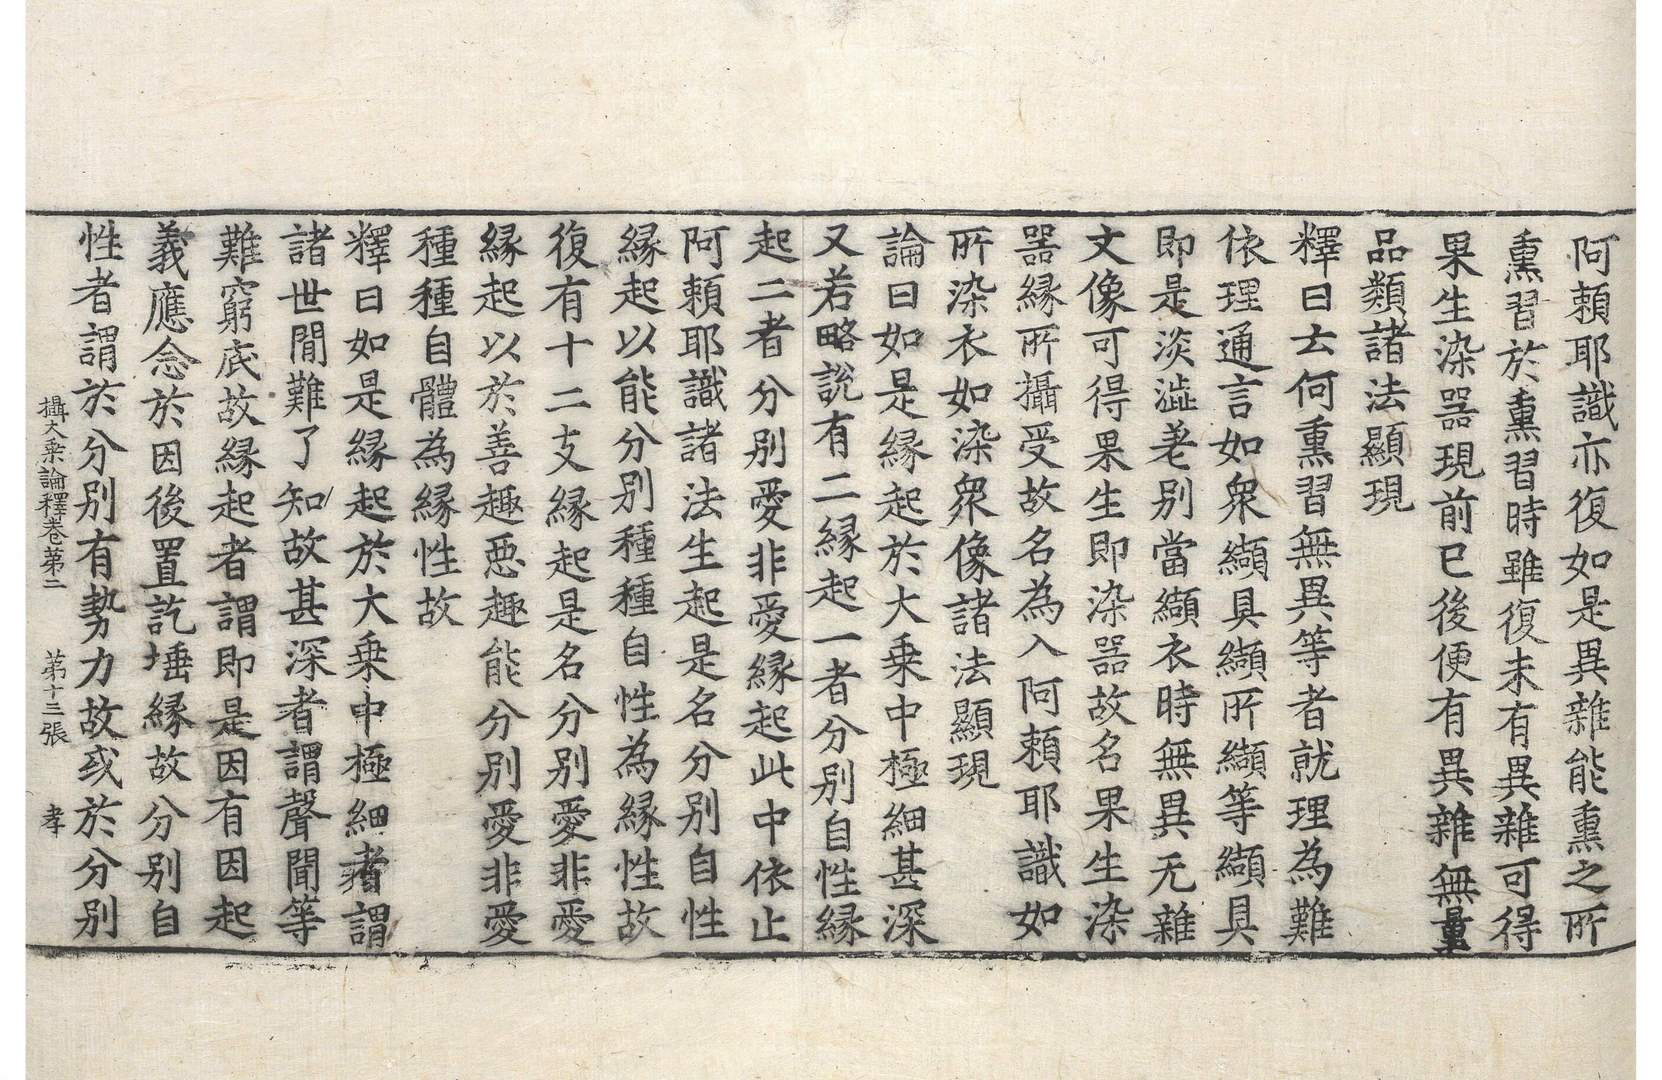 阿賴耶識亦復如是異雜能熏之所
熏習於熏習時雖復未有異雜可得
果生染器現前已後便有異雜無量
品類諸法顯現
釋曰云何熏習無異等者就理為難
依理通言如衆纈具纈所纈等纈具
即是淡澁差別當纈衣時無異无雜
文像可得果生即染器故名果生染
器緣所攝受故名為入阿賴耶識如
所染衣如染衆像諸法顯現
論曰如是緣起於大乗中極細甚深
又若略說有二緣起一者分別自性緣
起二者分別愛非愛緣起此中依止
阿賴耶識諸法生起是名分別自性
緣起以能分別種種自性為緣性故
復有十二支緣起是名分別愛非愛
緣起以於善趣惡趣能分別愛非愛
種種自體為緣性故
釋曰如是緣起於大乗中極細者謂
諸世間難了知故甚深者謂聲聞等
難窮底故緣起者謂即是因有因起
義應念於因後置訖埵緣故分別自
性者謂於分別有勢力故或於分別
攝大乗論釋卷第二 第十三張 孝